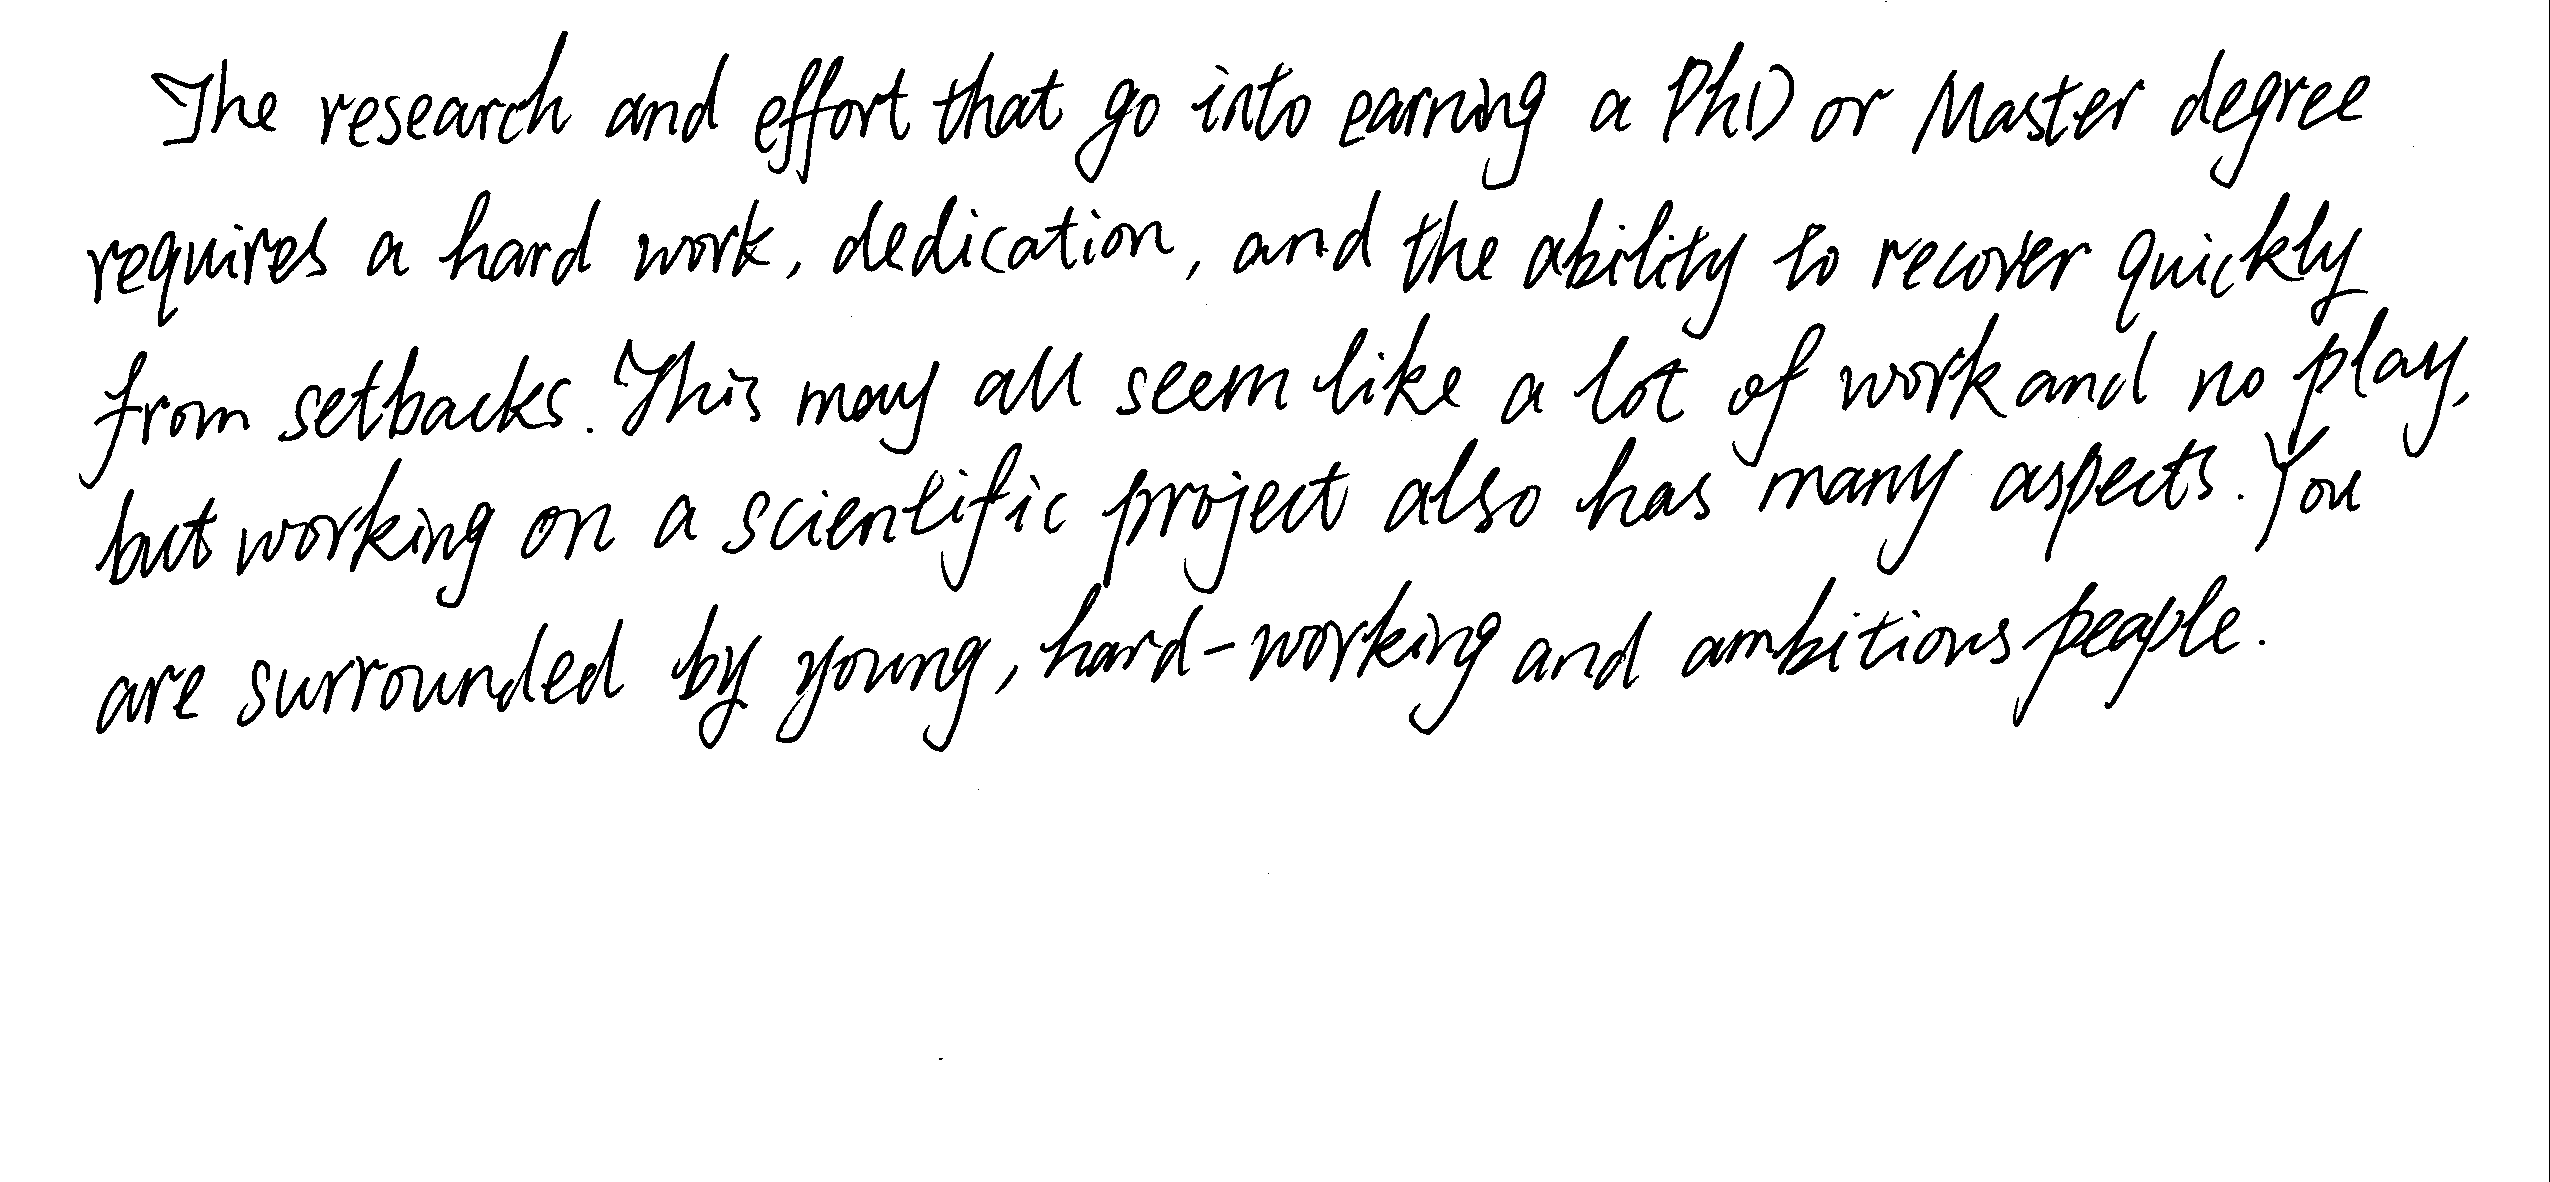 The research and effort that go into earning a PhD or Master degree
requires a hard work, dedication, and the ability to recover quickly
from setbacks. This may all seem like a lot of work and no play,
but working on a scientific project also has many aspects. You
are surrounded by young, hard-working and ambitions people.